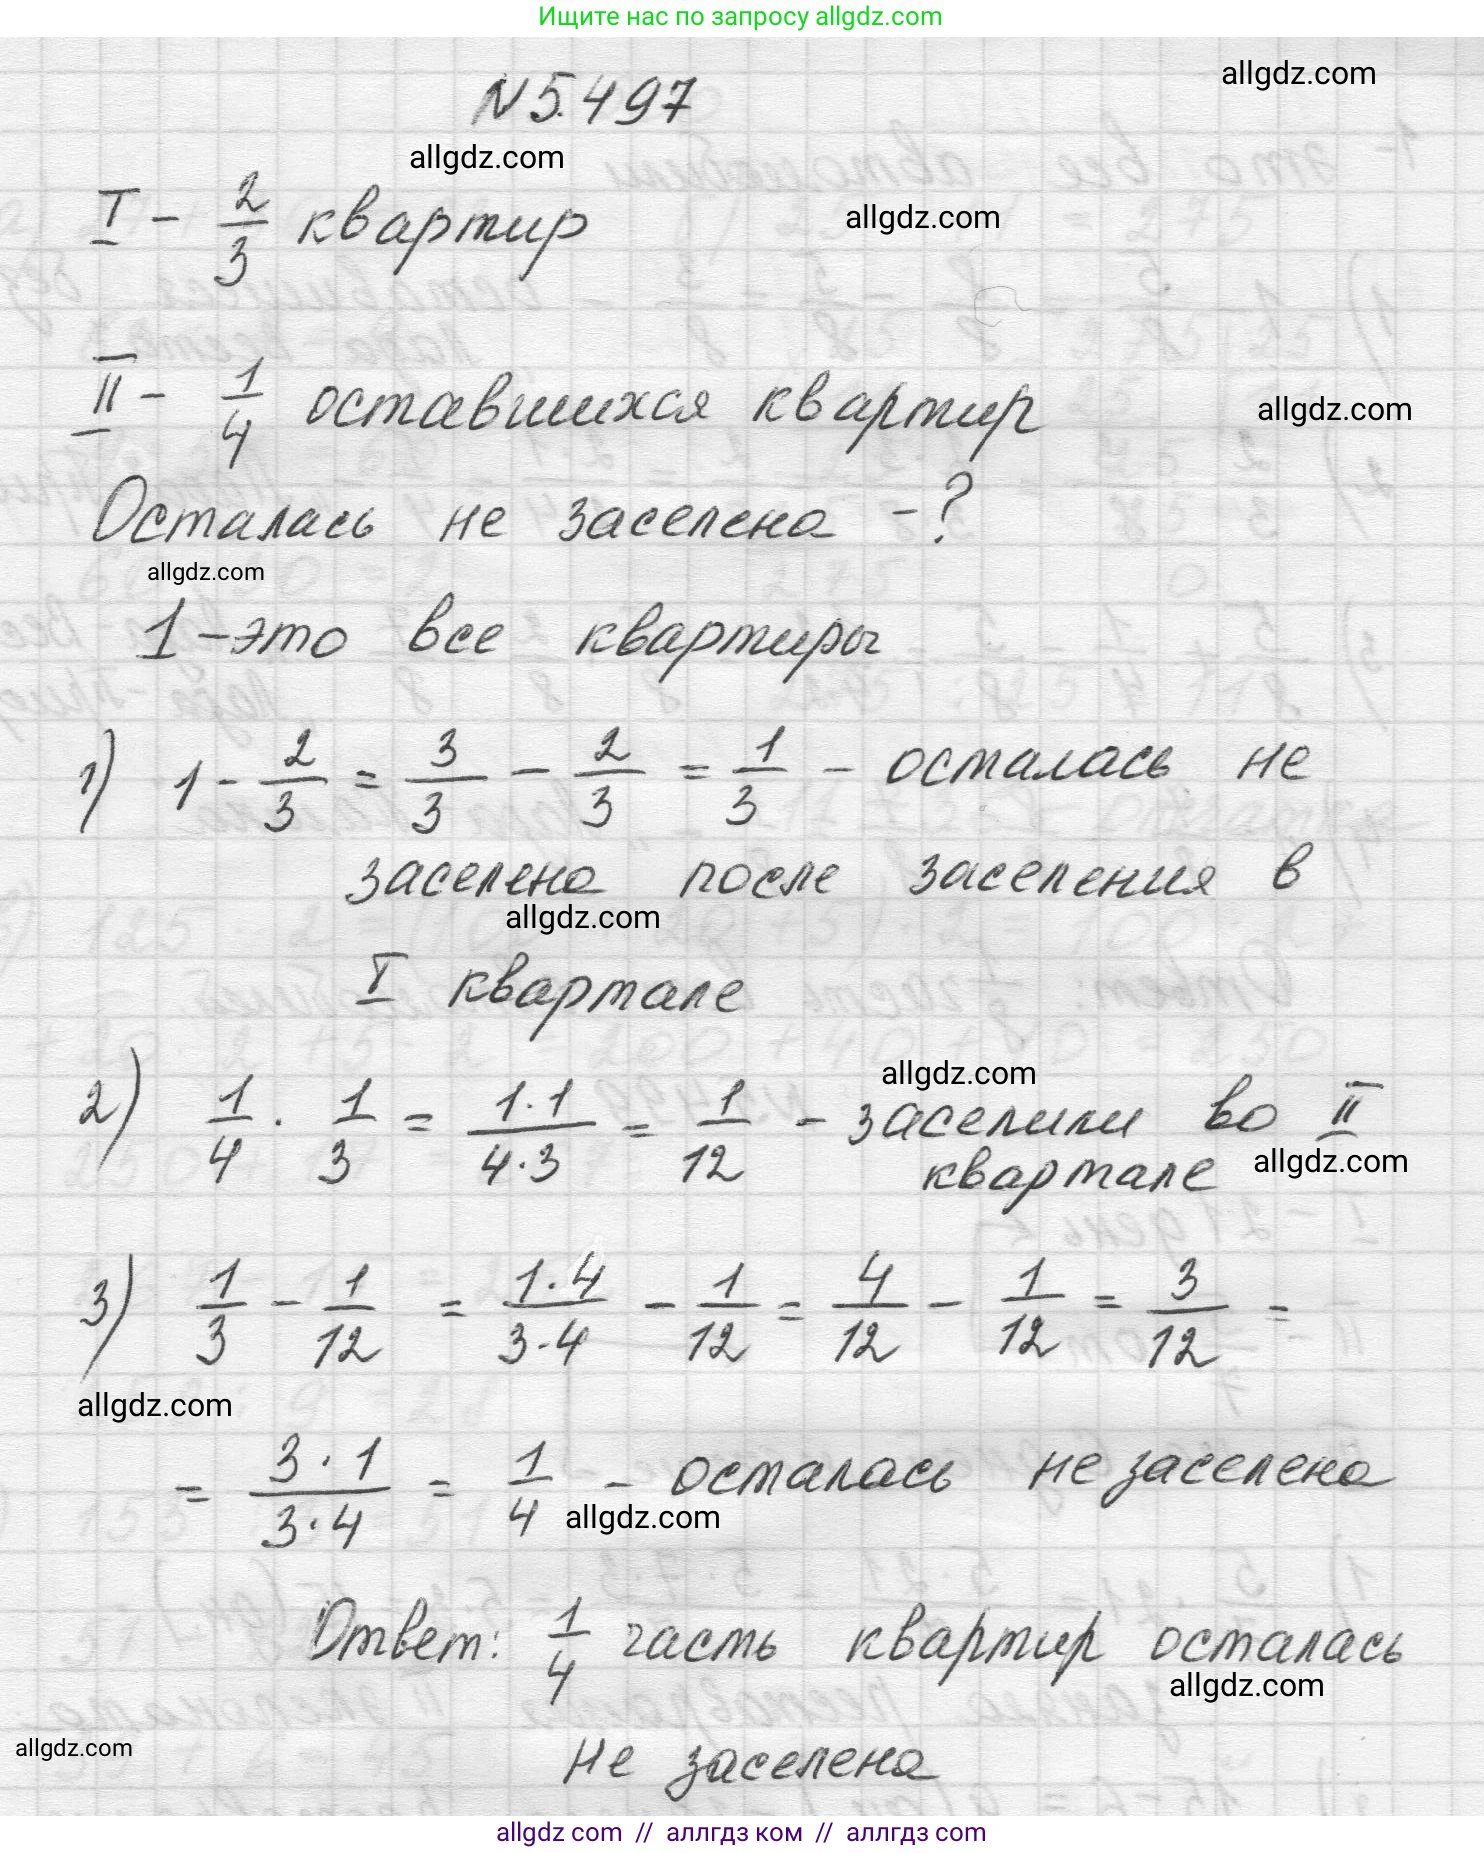 Ищите нас по запросу allgdz.com
allgdz.com
N 5.497
allgdz.com
I - 2/3 квартир
allgdz.com
II - 1/4 оставшихся квартир
allgdz.com
Осталась не заселена - ?
allgdz.com
1 - это все квартиры
1) 1 - 2/3 = 3/3 - 2/3 = 1/3 - осталась не
заселена после заселения в
allgdz.com
I квартале
allgdz.com
2) 1/4 · 1/3 = 1·1/4·3 = 1/12 - заселили во II
квартале
allgdz.com
3) 1/3 - 1/12 = 1·4/3·4 - 1/12 = 4/12 - 1/12 = 3/12 =
allgdz.com
= 3·1/3·4 = 1/4 - осталась не заселена
allgdz.com
Ответ: 1/4 часть квартир осталась
allgdz.com
не заселена
allgdz.com
allgdz com // аллгдз ком // аллгдз com